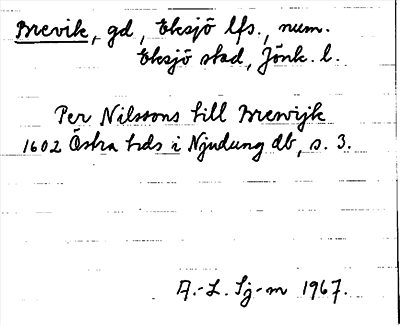 Brevik, gd, Eksjö lfs., num.
Eksjö stad, Jönk. l.
Per Nilssons till Brewijk
1602 Östra hds i Njudung db, s. 3.
A.-L. Sj-m 1967.